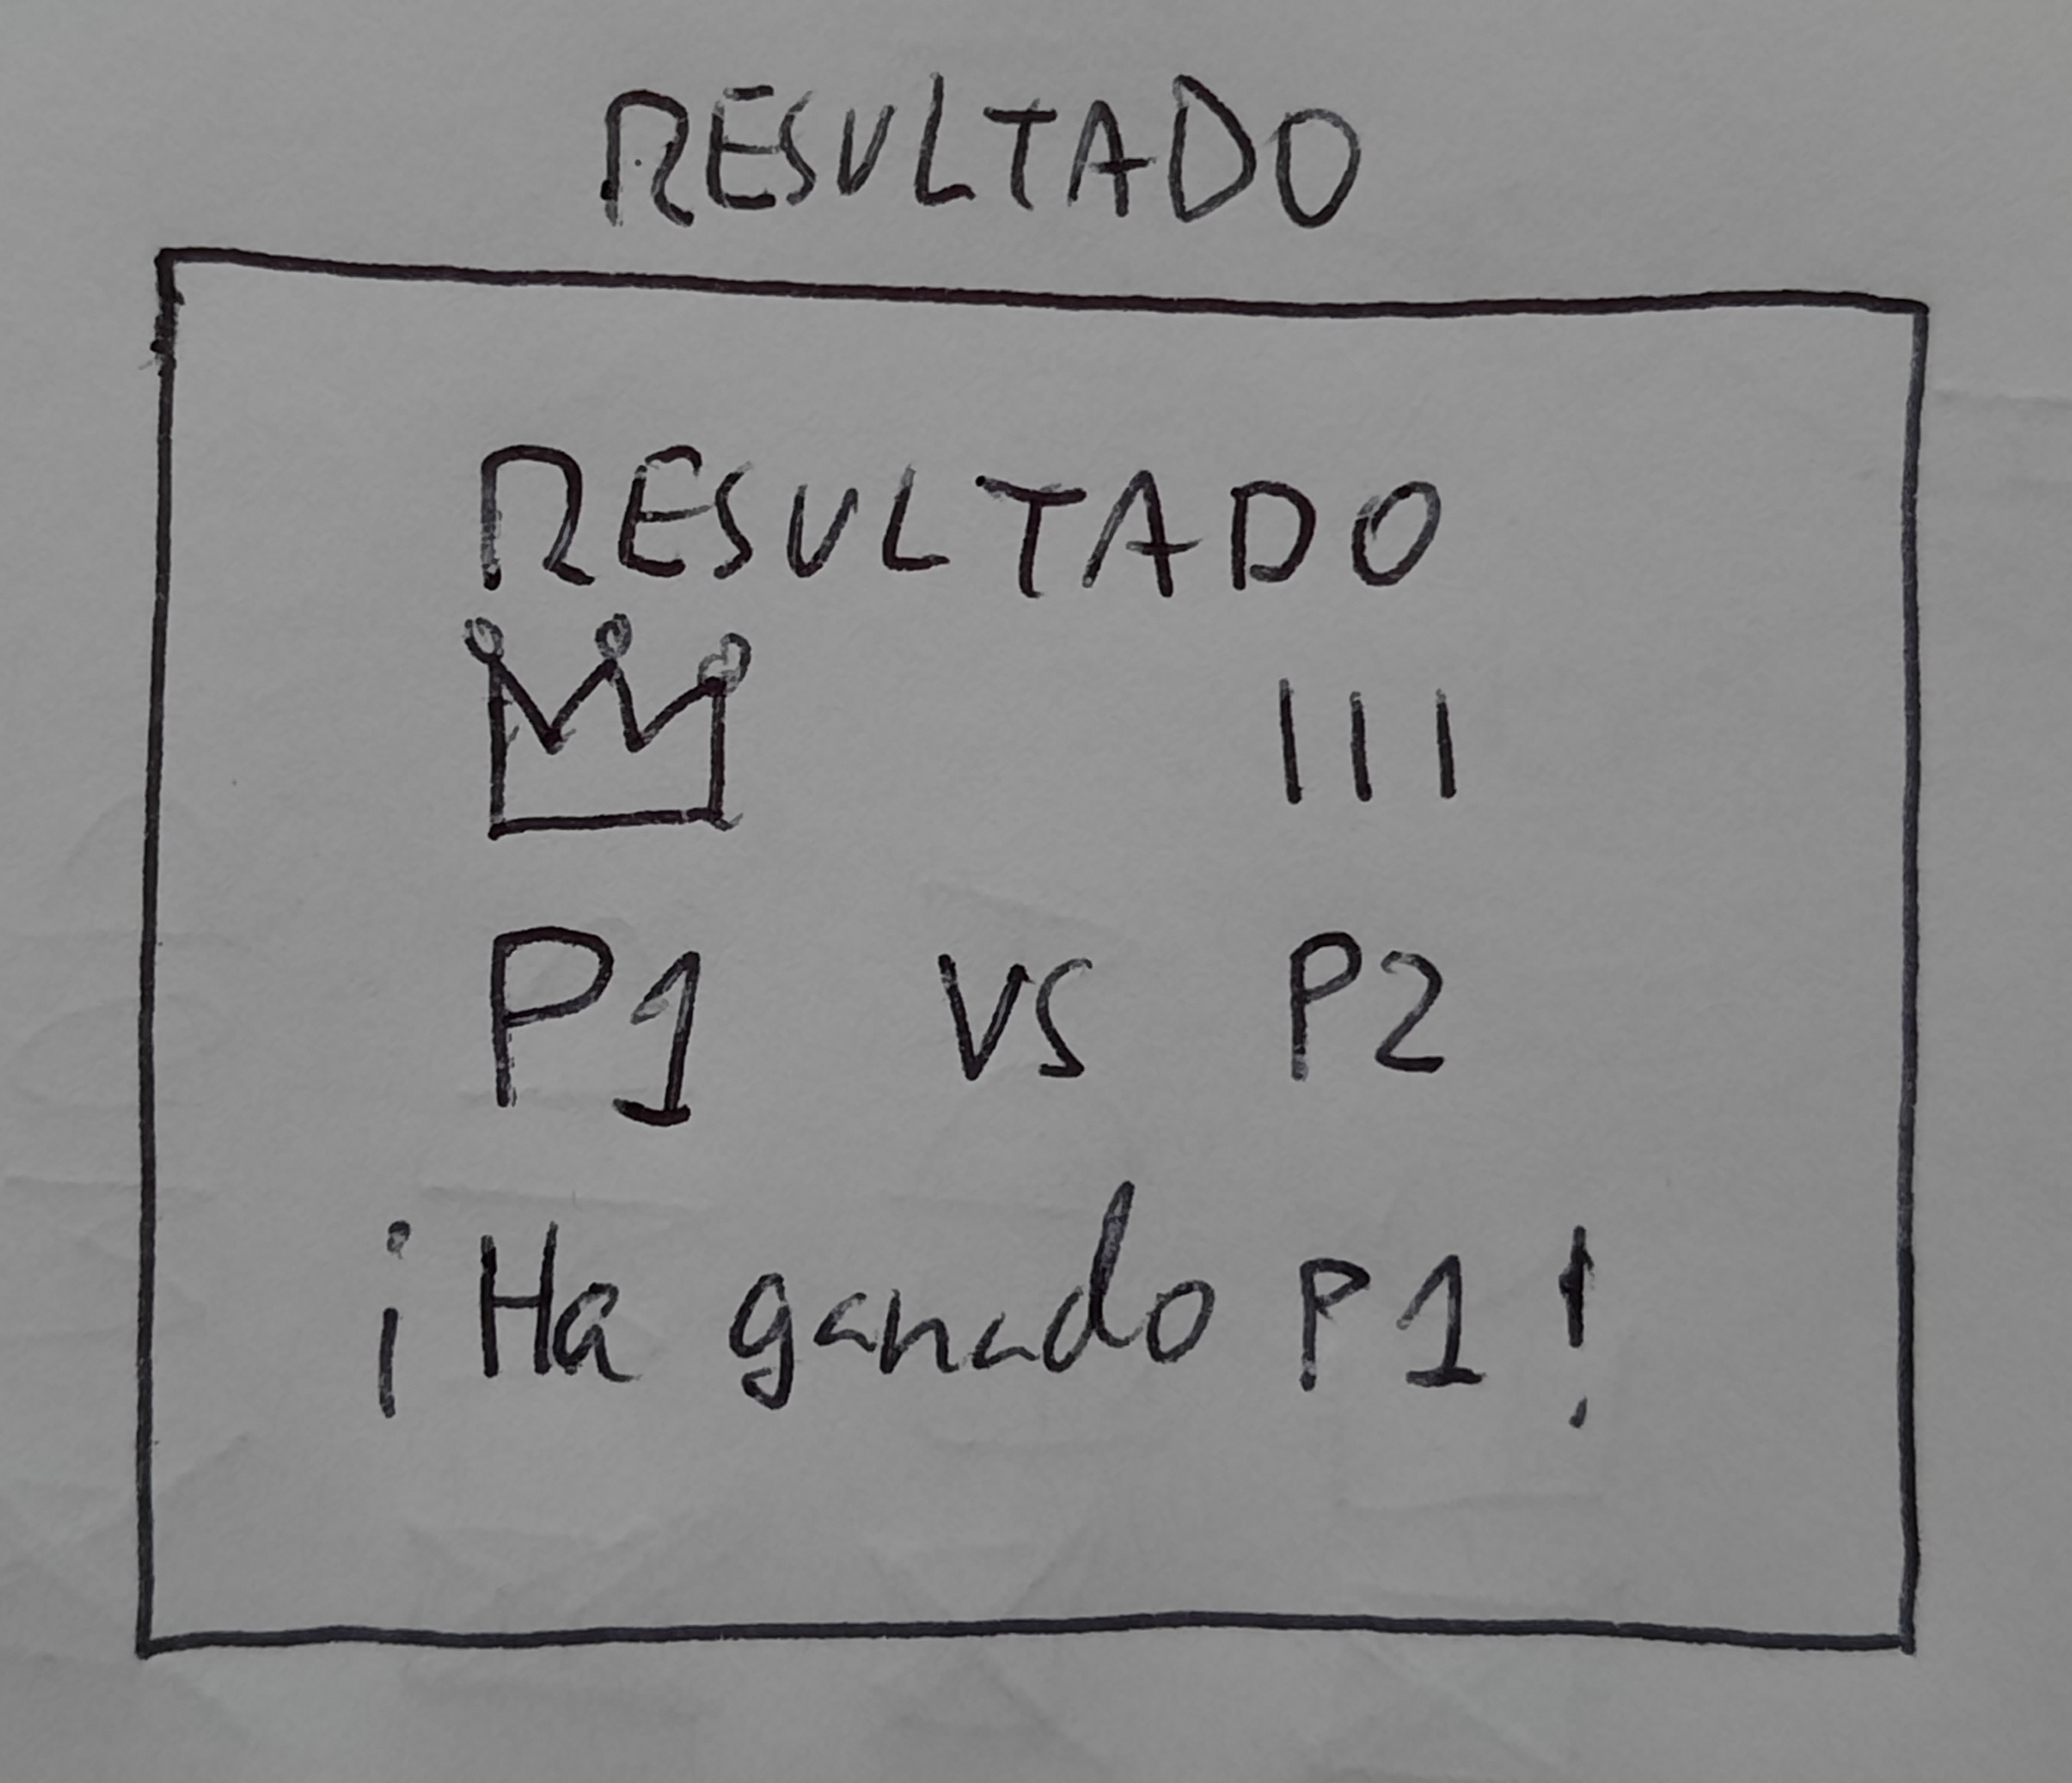 RESULTADO
RESULTADO
III
P1 VS P2
¡Ha ganado P1!